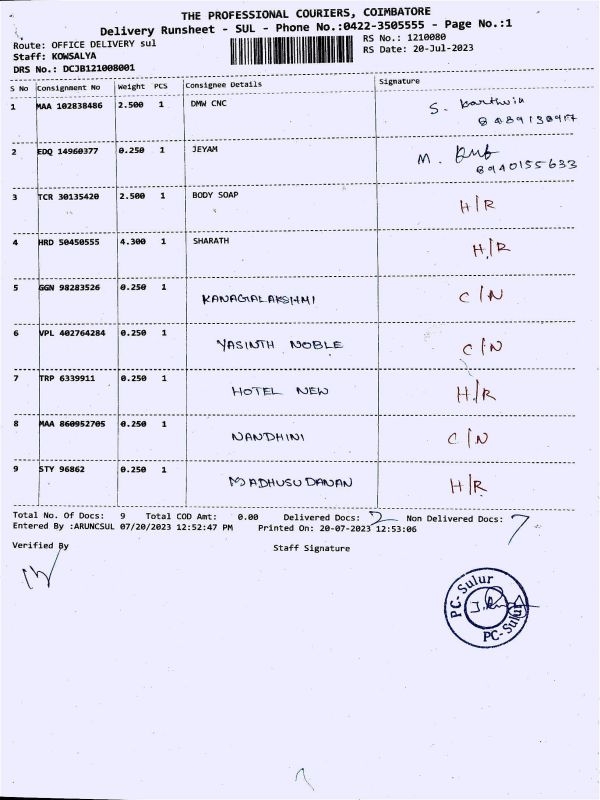 THE PROFESSIONAL COURIERS, COIMBATORE
Delivery Runsheet - SUL - Phone No.:0422-3505555 - Page No.:1
Route: OFFICE DELIVERY sul
RS No.: 1210080
Staff: KOWSALYA
RS Date: 20-Jul-2023
DRS No.: DCJB121008001
S No Consignment No Weight PCS Consignee Details Signature
1 MAA 102838486 2.500 1 DMW CNC S. Karthik
2 EDQ 14960377 0.250 1 JEYAM M.
8940155633
3 TCR 30135420 2.500 1 BODY SOAP H/R
4 HRD 50450555 4.300 1 SHARATH H/R
5 GGN 98283526 0.250 1 KANAGALAKSHMI C/N
6 VPL 402764284 0.250 1 YASINTH NOBLE C/N
7 TRP 6339911 0.250 1 HOTEL NEW H/R
8 MAA 860952705 0.250 1 NANDHINI C/N
9 STY 96862 0.250 1 MADHUSUDANAN H/R
Total No. Of Docs: 9 Total COD Amt: 0.00 Delivered Docs: 2 Non Delivered Docs: 7
Entered By :ARUNCSUL 07/20/2023 12:52:47 PM Printed On: 20-07-2023 12:53:06
Verified By Staff Signature
PC-Sulur
PC-Sulur